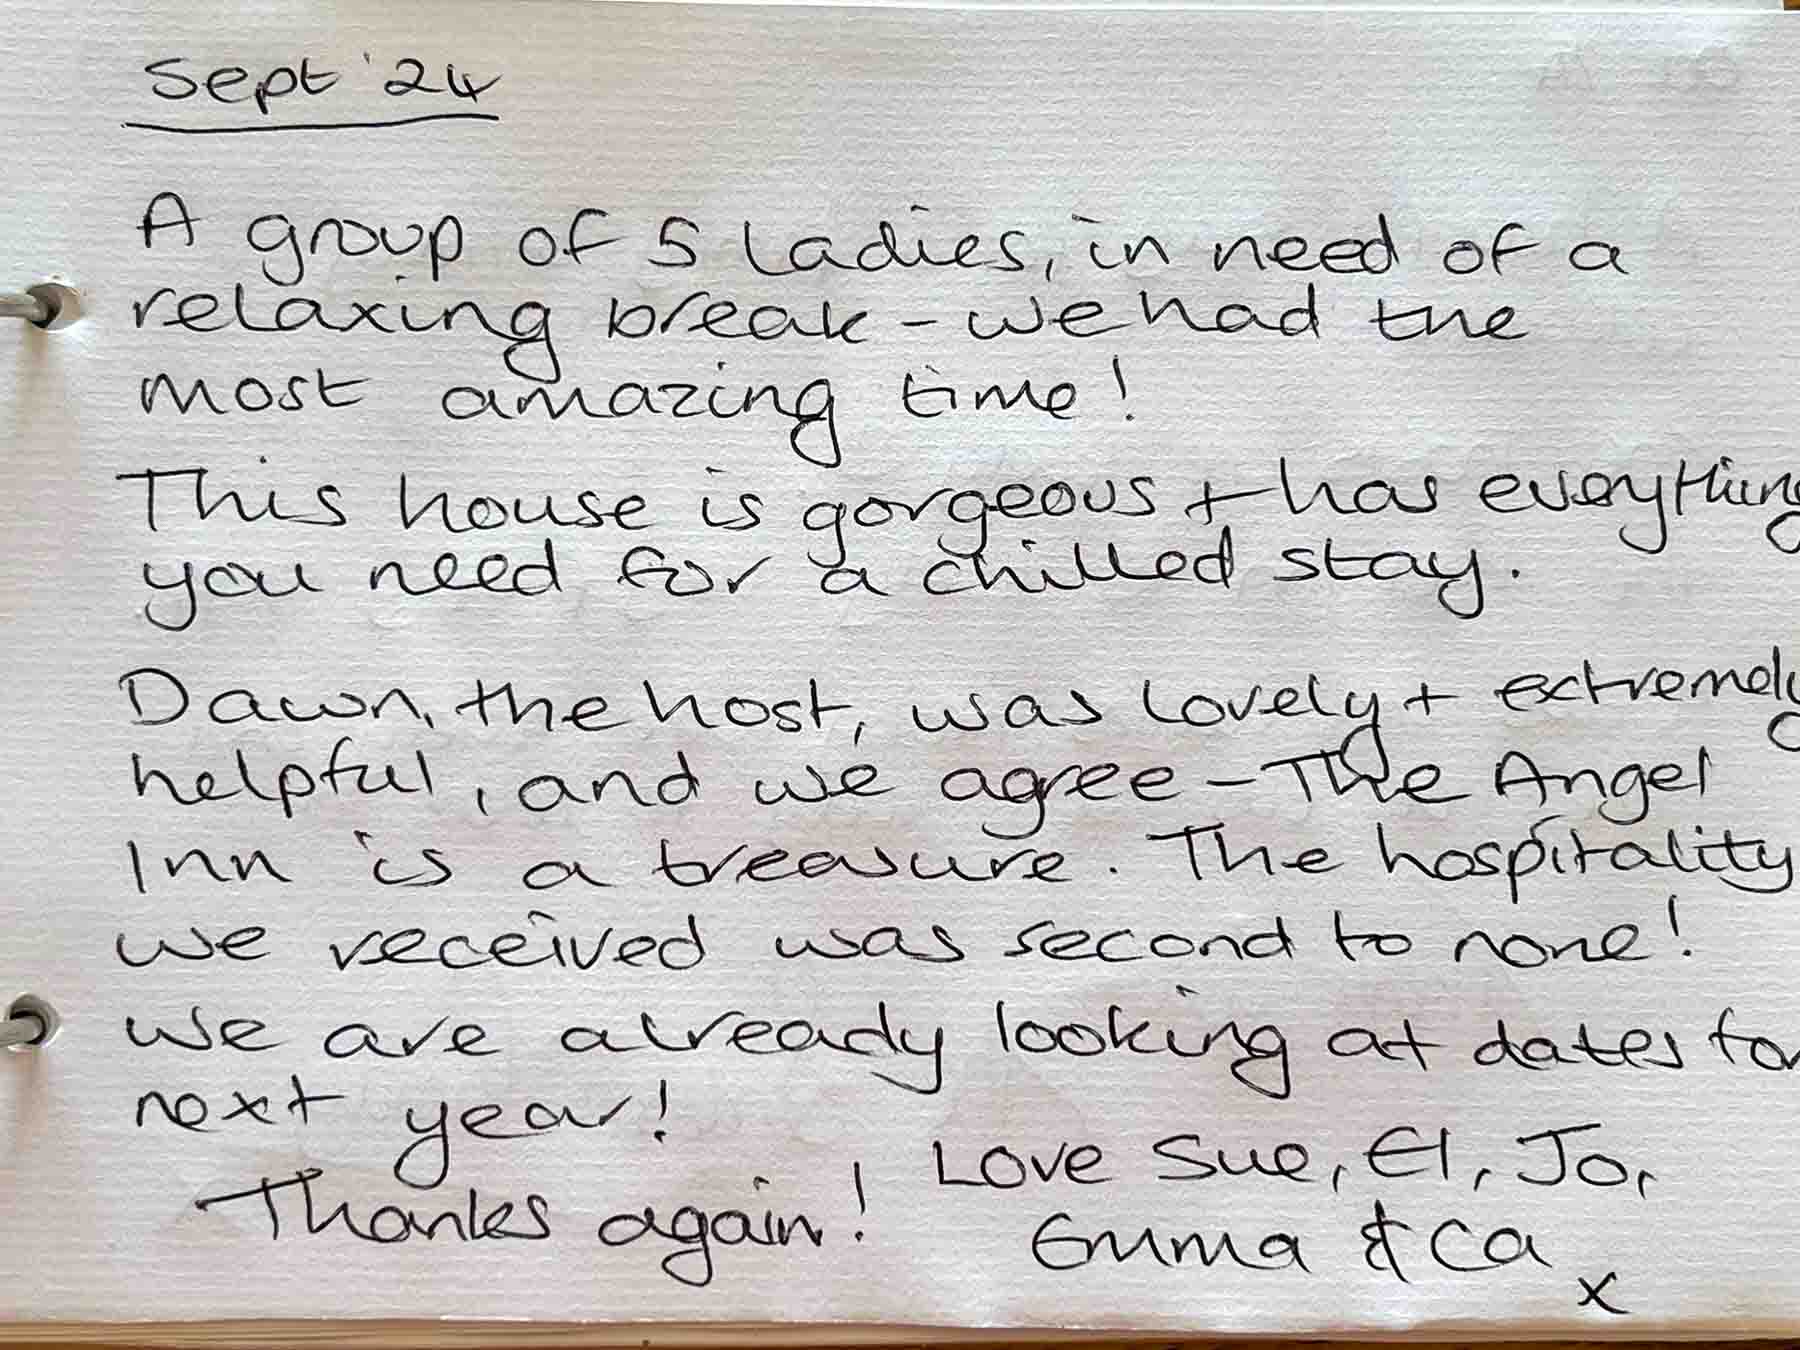 Sept '24
A group of 5 ladies, in need of a
relaxing break - we had the
most amazing time!
This house is gorgeous + has everything
you need for a chilled stay.
Dawn, the host, was lovely + extremely
helpful, and we agree - The Angel
Inn is a treasure. The hospitality
we received was second to none!
We are already looking at dates for
next year!
Thanks again!
Love Sue, El, Jo,
Emma & Ca
x